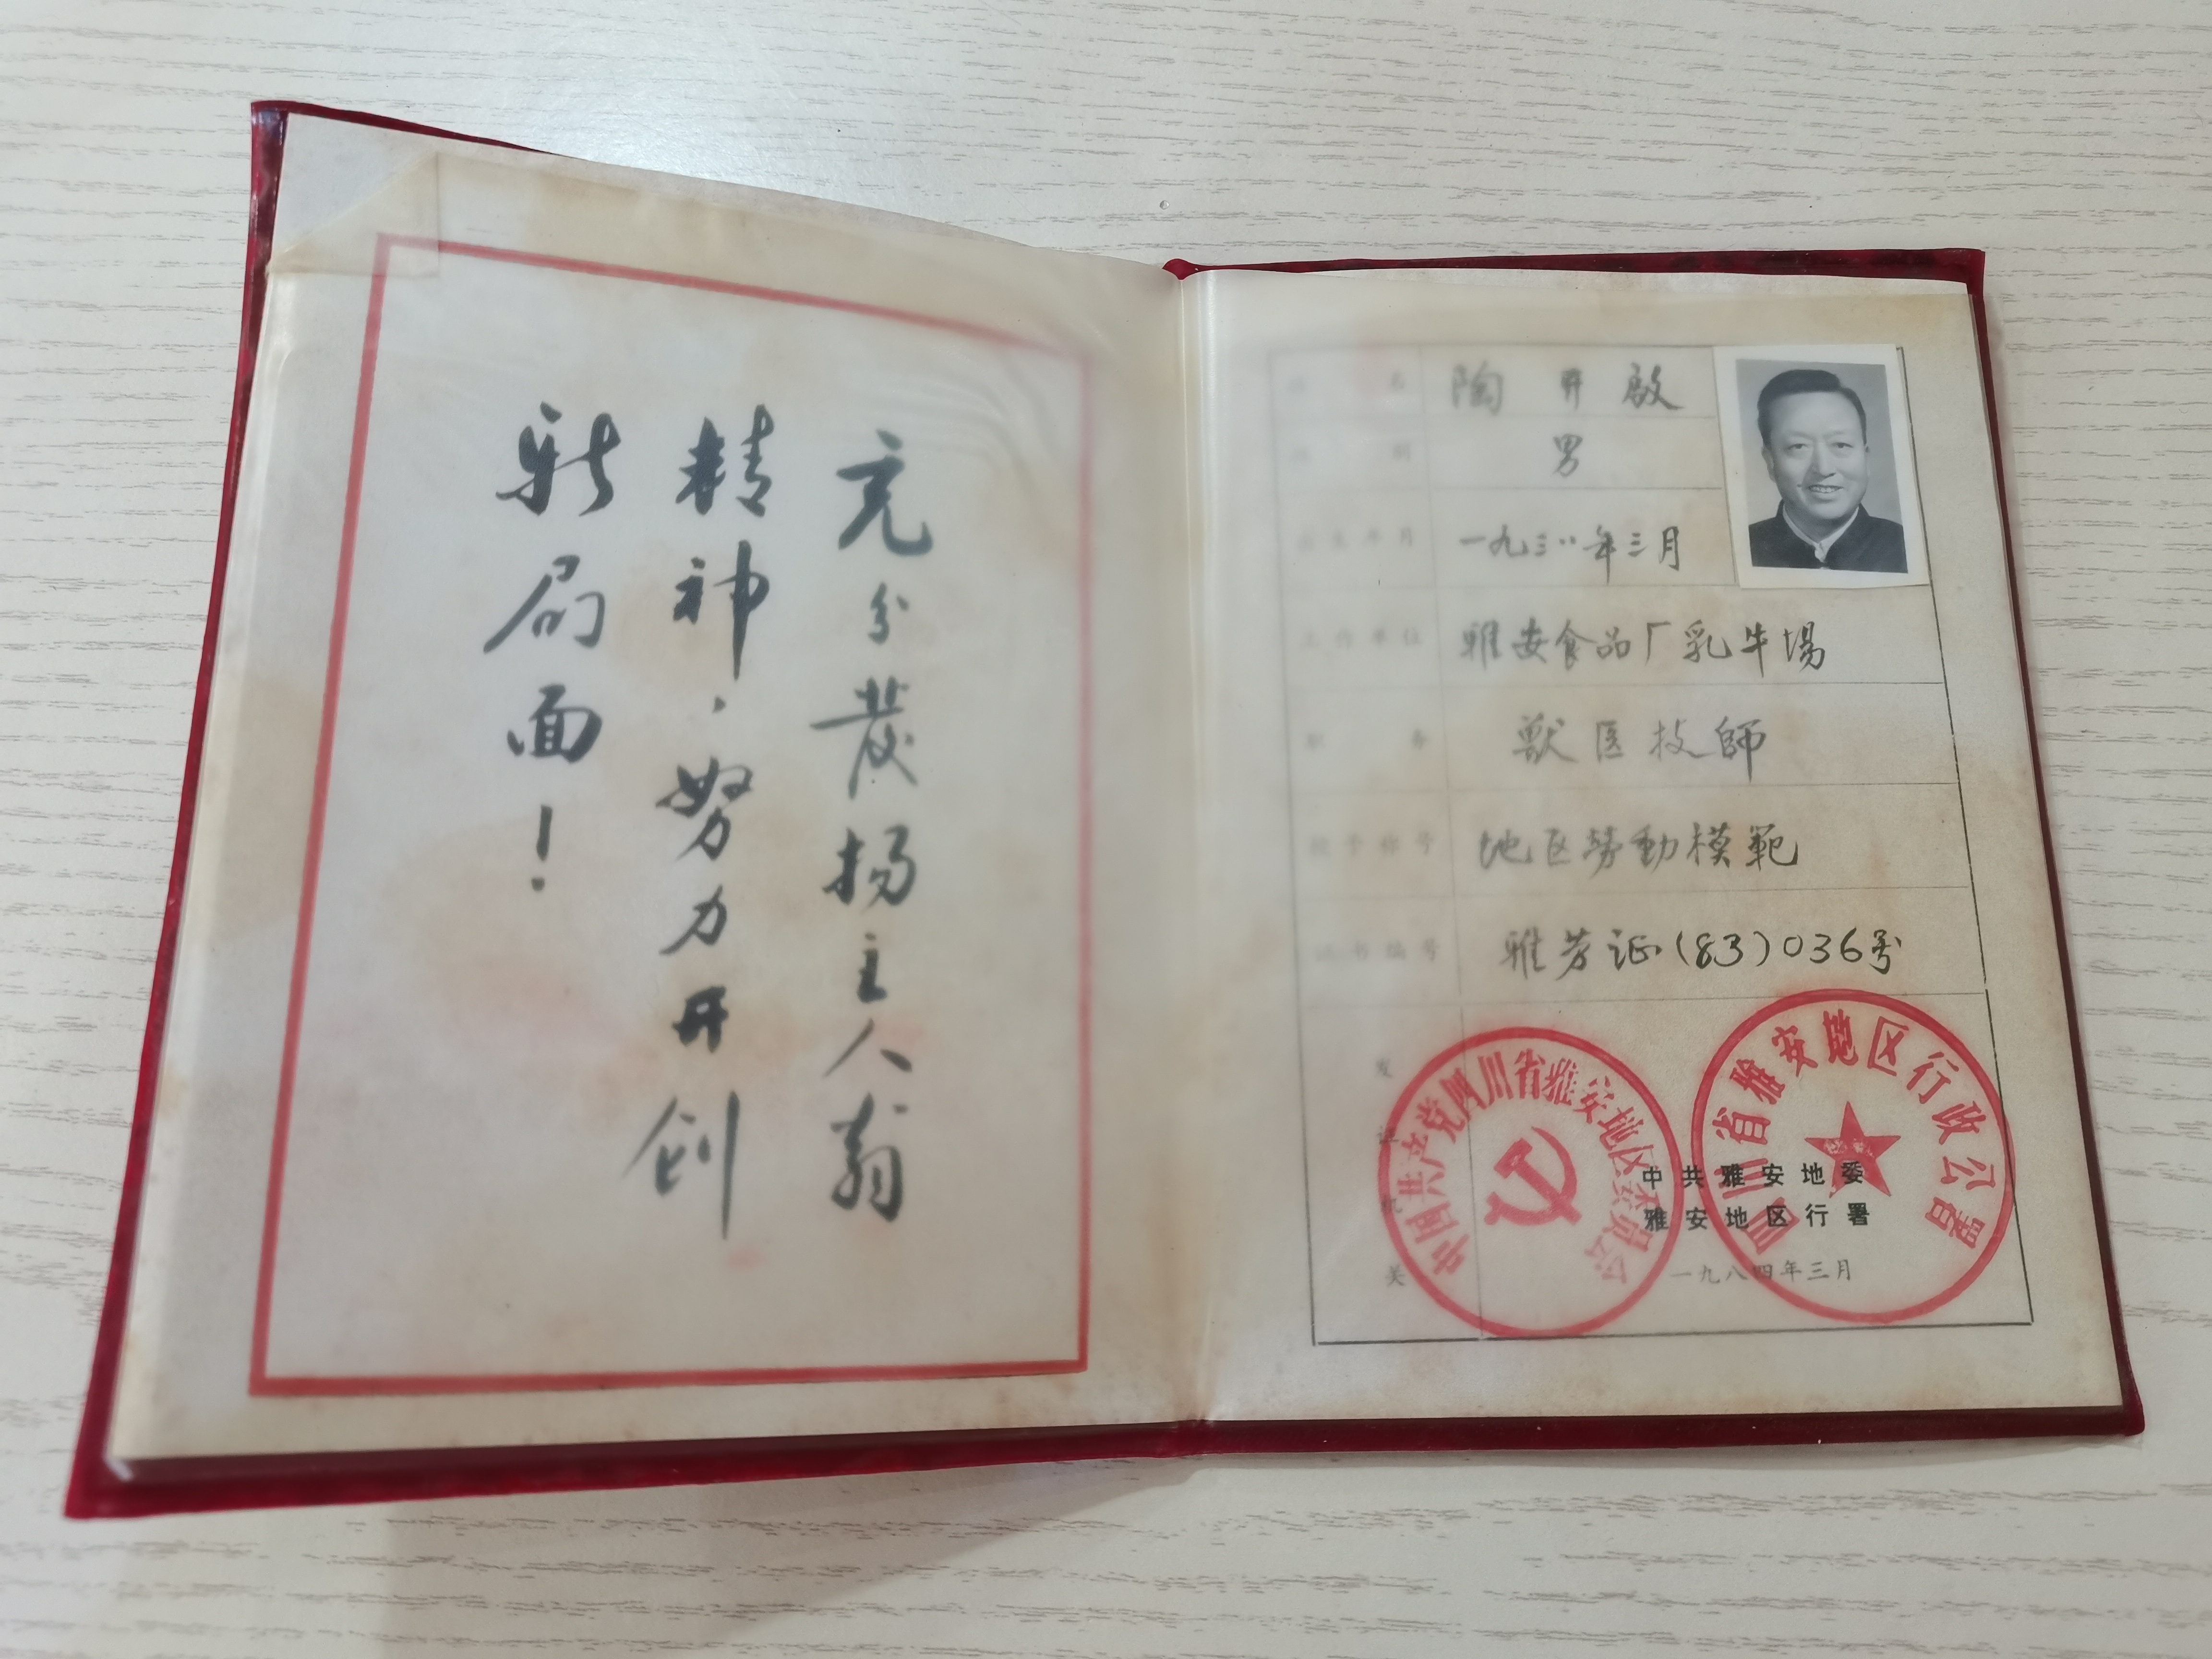 充分發扬主人翁
精神，努力开创
新局面！
姓 名 陶开啟
性 别 男
出生年月 一九三八年三月
工作单位 雅安食品厂乳牛場
职 务 獸医技師
授予称号 地区勞動模範
证书编号 雅劳证(83)036号
发证机关
中国共产党四川省雅安地区委员会
四川省雅安地区行政公署
中共雅安地委
雅安地区行署
一九八四年三月